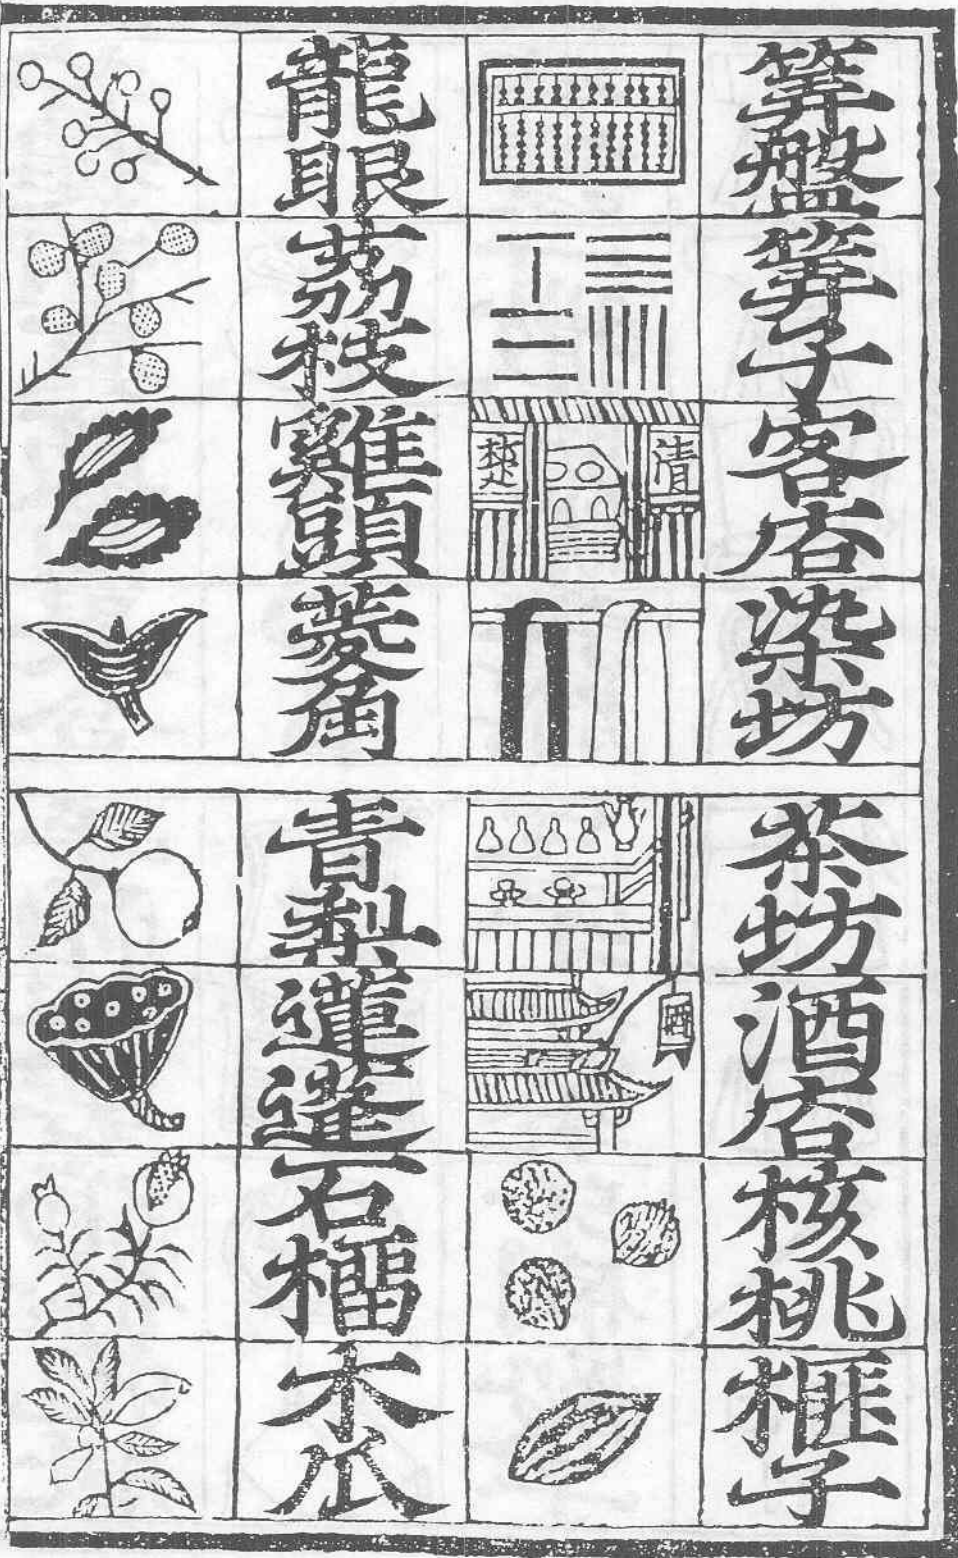 筭盤筭子客店染坊茶坊酒店核桃榧子
清楚
酒
龍眼荔枝雞頭菱角青梨蓮蓬石榴木瓜